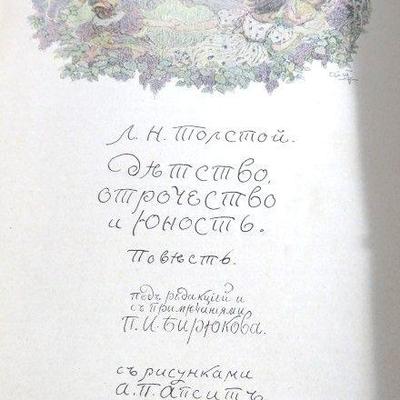 Л. Н. Толстой.
Дѣтство,
отрочество
и Юность.
Повѣсть.
подъ редакціей и
съ примѣчаніями
П. И. Бирюкова.
съ рисунками
А. П. Апситъ